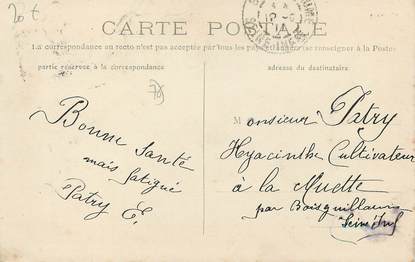 20 €
CARTE POSTALE
La correspondance au recto n'est pas acceptée par tous les pays étrangers (se renseigner à la Poste)
partie réservée à la correspondance
adresse du destinataire
Bonne santé
mais fatigué
Patry E.
Monsieur Patry
Hyacinthe Cultivateur
à la Muette
par Boisguillaume
Seine Inf